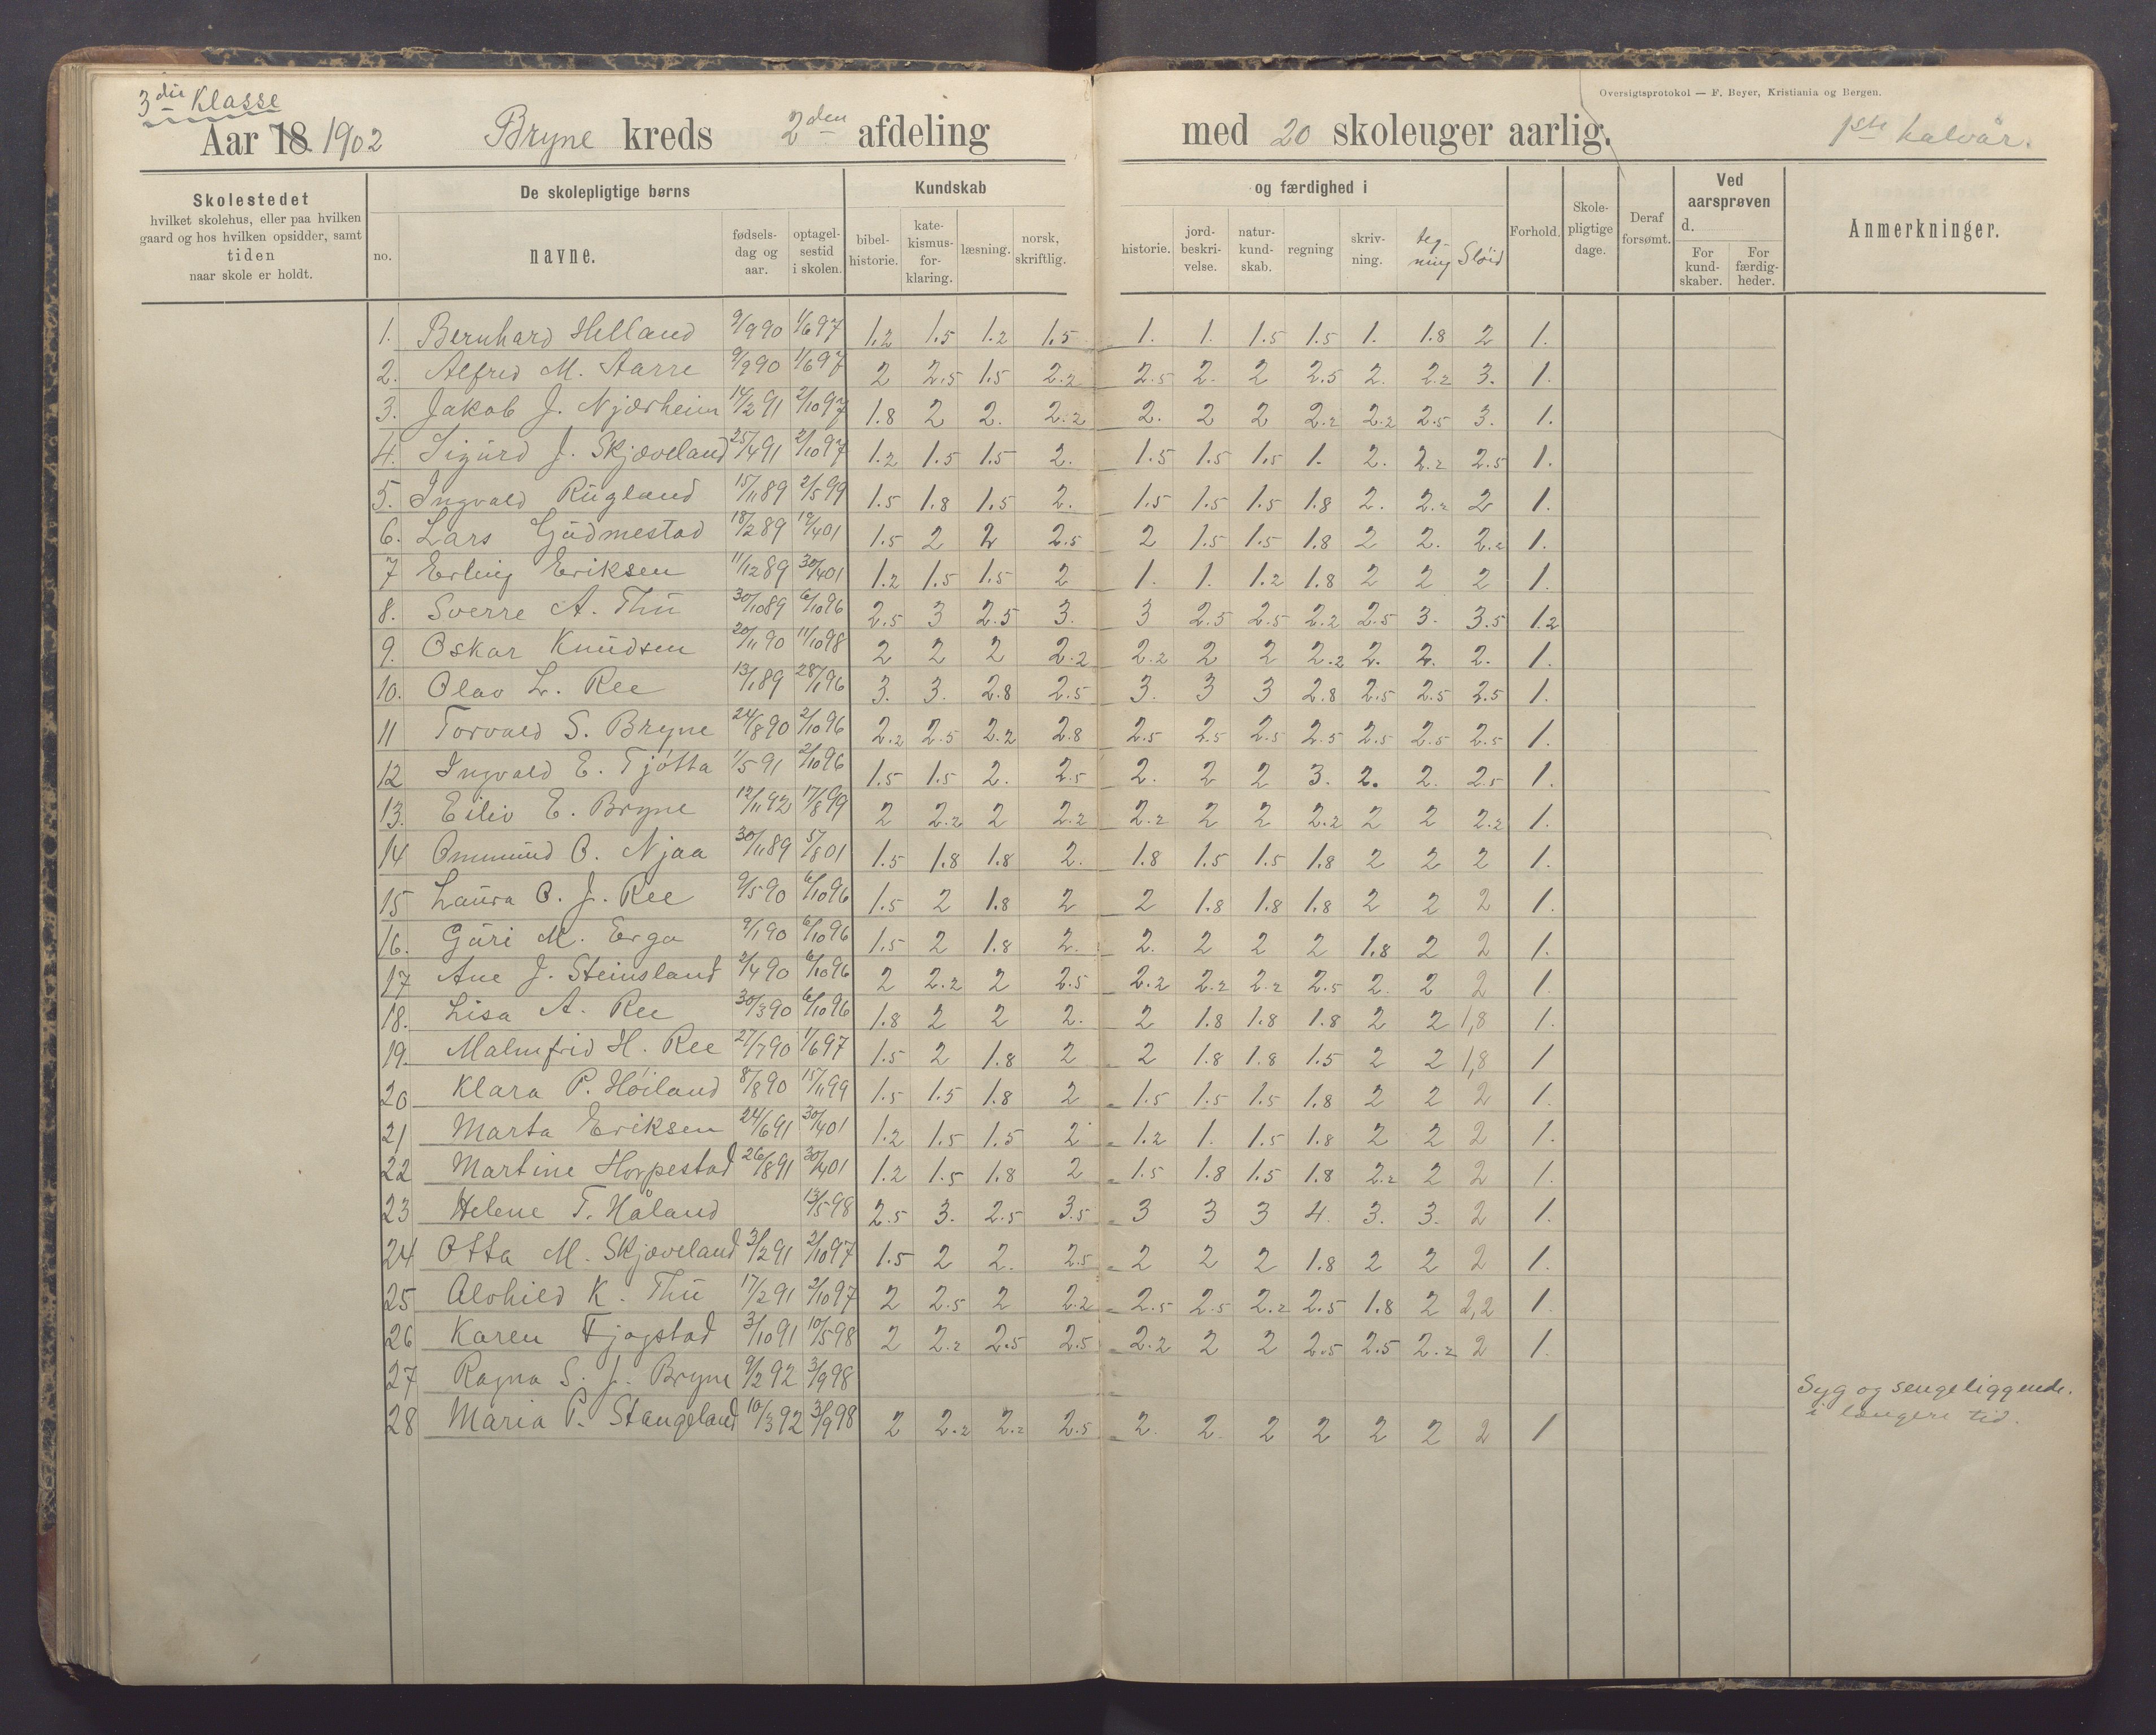 3die Klasse
Oversigtsprotokol — F. Beyer, Kristiania og Bergen.
Aar 18 1902 Bryne kreds 2den afdeling med 20 skoleuger aarlig. 1ste halvår.
Skolestedet hvilket skolehus, eller paa hvilken gaard og hos hvilken opsidder, samt tiden naar skole er holdt.
De skolepligtige børns
no. navne. fødsels-dag og aar. optagel-sestid i skolen.
Kundskab og færdighed i
bibel-historie. kate-kismus-for-klaring. læsning. norsk, skriftlig. historie. jord-beskri-velse. natur-kund-skab. regning skriv-ning. teg-ning Slöid
Forhold. Skole-pligtige dage. Deraf forsømt. Ved aarsprøven d. For kund-skaber. For færdig-heder. Anmerkninger.
1. Bernhard Helland 9/9 90 1/6 97 1.2 1.5 1.2 1.5 1. 1. 1.5 1.5 1. 1.8 2 1.
2. Alfred M. Aarre 9/9 90 1/6 97 2 2.5 1.5 2.2 2.5 2. 2 2.5 2. 2.2 3. 1.
3. Jakob J. Njærheim 14/2 91 2/10 97 1.8 2 2. 2.2 2. 2 2 2.2 2.2 2.5 3. 1.
4. Sigurd J. Skjæveland 25/4 91 2/10 97 1.2 1.5 1.5 2. 1.5 1.5 1.5 1. 2. 2.2 2.5 1.
5. Ingvald Rugland 15/11 89 2/5 99 1.5 1.8 1.5 2. 1.5 1.5 1.5 1.8 2. 2.2 2 1.
6. Lars Gudmestad 18/2 89 19/4 01 1.5 2 2 2.5 2 1.5 1.5 1.8 2 2. 2.2 1.
7 Erling Eriksen 11/12 89 30/4 01 1.2 1.5 1.5 2 1. 1. 1.2 1.8 2 2 2 1.
8. Sverre A. Thu 30/10 89 6/10 96 2.5 3 2.5 3. 3 2.5 2.5 2.2 2.5 3. 3.5 1.2
9. Oskar Knudsen 20/11 90 11/10 98 2 2 2 2.2 2.2 2 2 2.2 2. 2. 2. 1.
10. Olav L. Ree 13/1 89 28/1 96 3. 3. 2.8 2.5 3. 3 3 2.8 2.5 2.5 2.5 1.
11 Torvald S. Bryne 24/8 90 2/10 96 2.2 2.5 2.2 2.8 2.5 2.5 2.5 2.5 2.5 2.5 2.5 1.
12 Ingvald E. Tjøtta 1/5 91 2/10 96 1.5 1.5 2. 2.5 2. 2 2 3. 2. 2. 2.5 1.
13. Eiliv E. Bryne 12/11 92 17/8 99 2 2.2 2 2.2 2.2 2 2 2.2 2 2 2.2 1.
14 Ommund O. Njaa 30/11 89 5/8 01 1.5 1.8 1.8 2. 1.8 1.5 1.5 1.8 2 2 2 1.
15 Laura O. J. Ree 9/5 90 6/10 96 1.5 2 1.8 2 2 1.8 1.8 1.8 2 2 2 1.
16. Guri M. Erga 9/1 90 6/10 96 1.5 2 1.8 2. 2. 2 2 2 1.8 2 2 1.
17 Ane J. Steinsland 2/4 90 6/10 96 2 2.2 2 2.5 2.2 2.2 2.2 2.5 2. 2 2 1.
18. Lisa A. Ree 30/3 90 6/10 96 1.8 2 2 2. 2 1.8 1.8 1.8 2 2 1,8 1.
19. Malmfrid H. Ree 27/7 90 1/6 97 1.5 2 1.8 2 2 1.8 1.8 1.5 2 2 1,8 1
20 Klara P. Höiland 8/8 90 15/11 99 1.5 1.5 1.8 2 1.5 1.5 1.5 1.8 2 2 2 1.
21 Marta Eriksen 24/6 91 30/4 01 1.2 1.5 1.5 2 1.2 1. 1.5 1.8 2 2 2 1.
22 Martine Horpestad 26/8 91 30/4 01 1.2 1.5 1.8 2 1.5 1.8 1.5 1.8 2.2 2 2 1.
23 Helene T. Håland 13/5 98 2.5 3. 2.5 3.5 3 3 3 4. 3. 3. 2 1.
24 Otta M. Skjæveland 3/2 91 2/10 97 1.5 2 2. 2.5 2 2 2 1.8 2 2 2 1.
25 Alvhild K. Thu 17/2 91 2/10 97 2 2.5 2 2.2 2.5 2.5 2.2 2.5 1.8 2 2,2 1.
26 Karen Fjogstad 3/10 91 10/5 98 2 2.2 2.5 2.5 2.2 2 2 2.5 2.5 2.2 2 1.
27 Ragna S. J. Bryne 9/2 92 3/9 98 Syg og sengeliggende i længere tid.
28 Maria P. Stangeland 10/3 92 3/9 98 2 2.2 2.2 2.5 2. 2. 2 2 2 2 2 1